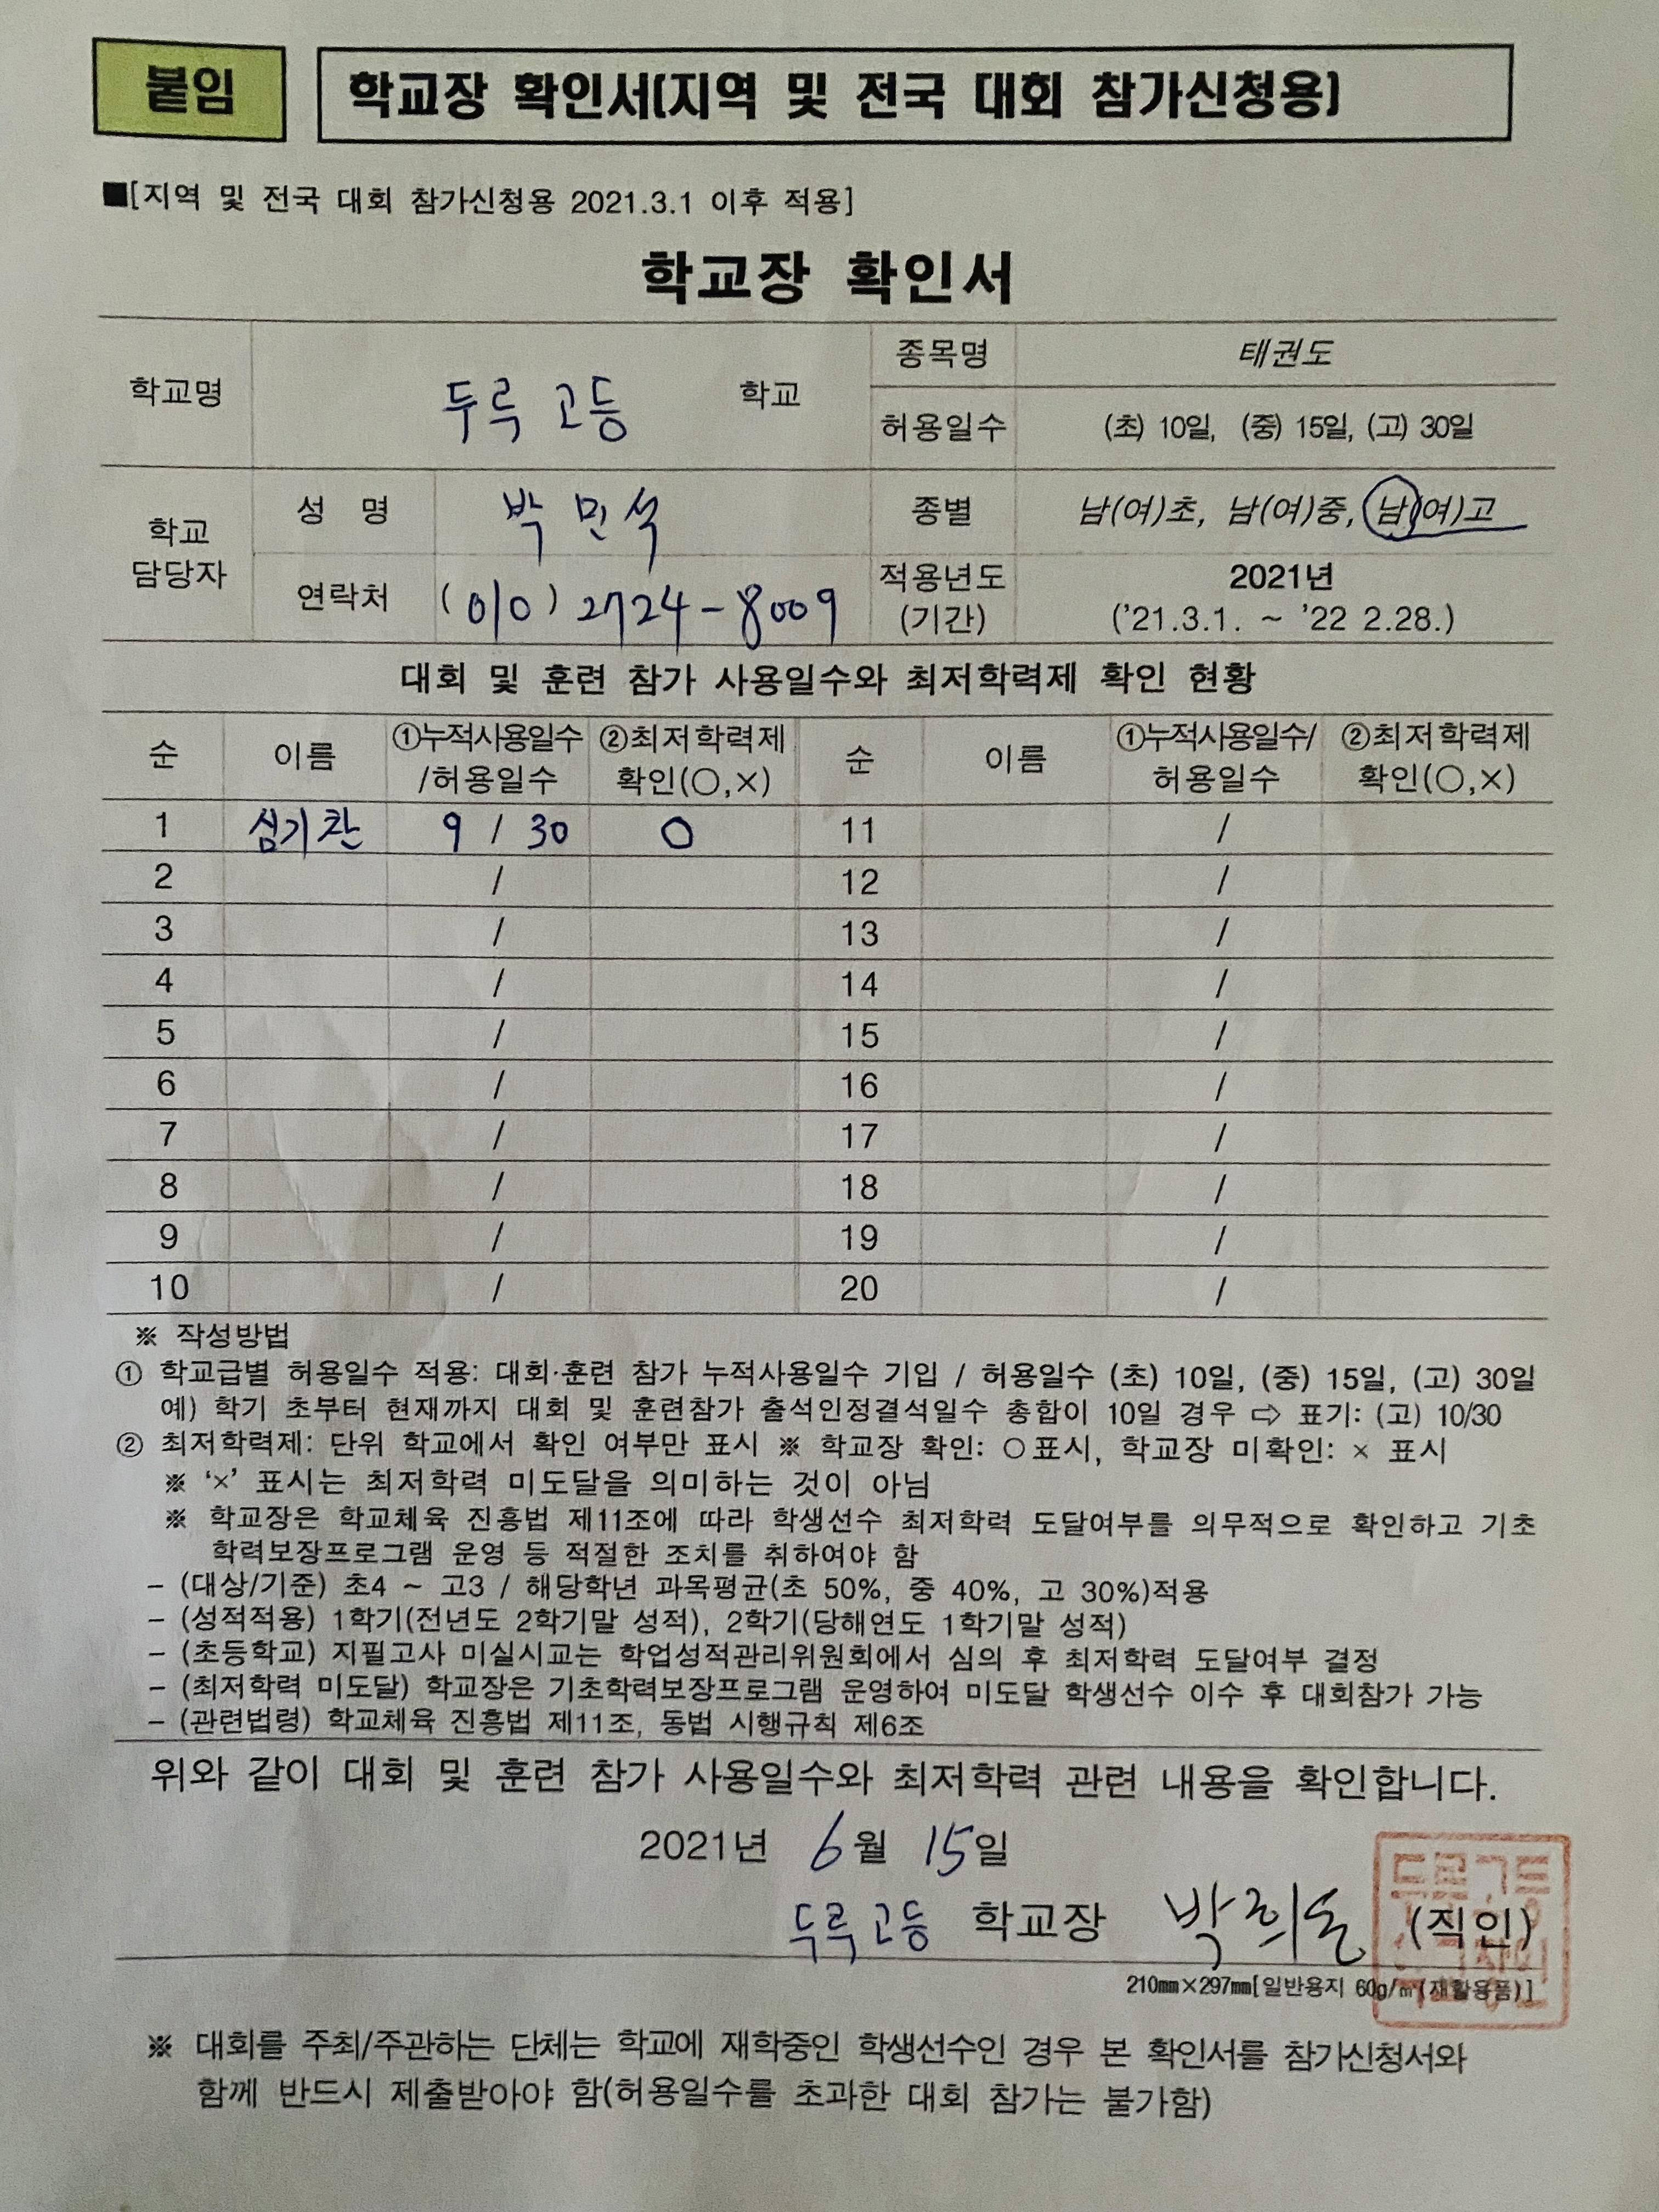 붙임
학교장 확인서(지역 및 전국 대회 참가신청용)
■[지역 및 전국 대회 참가신청용 2021.3.1 이후 적용]
학교장 확인서
학교명 두루 고등 학교 종목명 태권도
허용일수 (초) 10일, (중) 15일, (고) 30일
학교 담당자 성 명 박민석 종별 남(여)초, 남(여)중, 남(여)고
연락처 (010) 2724-8009 적용년도 (기간) 2021년 ('21.3.1. ~ '22 2.28.)
대회 및 훈련 참가 사용일수와 최저학력제 확인 현황
순 이름 ①누적사용일수/허용일수 ②최저학력제 확인(○,×) 순 이름 ①누적사용일수/허용일수 ②최저학력제 확인(○,×)
1 심기찬 9 / 30 ○ 11 /
2 / 12 /
3 / 13 /
4 / 14 /
5 / 15 /
6 / 16 /
7 / 17 /
8 / 18 /
9 / 19 /
10 / 20 /
※ 작성방법
① 학교급별 허용일수 적용: 대회·훈련 참가 누적사용일수 기입 / 허용일수 (초) 10일, (중) 15일, (고) 30일
예) 학기 초부터 현재까지 대회 및 훈련참가 출석인정결석일수 총합이 10일 경우 ⇨ 표기: (고) 10/30
② 최저학력제: 단위 학교에서 확인 여부만 표시 ※ 학교장 확인: ○표시, 학교장 미확인: × 표시
※ '×' 표시는 최저학력 미도달을 의미하는 것이 아님
※ 학교장은 학교체육 진흥법 제11조에 따라 학생선수 최저학력 도달여부를 의무적으로 확인하고 기초
학력보장프로그램 운영 등 적절한 조치를 취하여야 함
- (대상/기준) 초4 ~ 고3 / 해당학년 과목평균(초 50%, 중 40%, 고 30%)적용
- (성적적용) 1학기(전년도 2학기말 성적), 2학기(당해연도 1학기말 성적)
- (초등학교) 지필고사 미실시교는 학업성적관리위원회에서 심의 후 최저학력 도달여부 결정
- (최저학력 미도달) 학교장은 기초학력보장프로그램 운영하여 미도달 학생선수 이수 후 대회참가 가능
- (관련법령) 학교체육 진흥법 제11조, 동법 시행규칙 제6조
위와 같이 대회 및 훈련 참가 사용일수와 최저학력 관련 내용을 확인합니다.
2021년 6월 15일
두루고등 학교장 박희 (직인)
210㎜×297㎜[일반용지 60g/㎡(재활용품)]
※ 대회를 주최/주관하는 단체는 학교에 재학중인 학생선수인 경우 본 확인서를 참가신청서와
함께 반드시 제출받아야 함(허용일수를 초과한 대회 참가는 불가함)